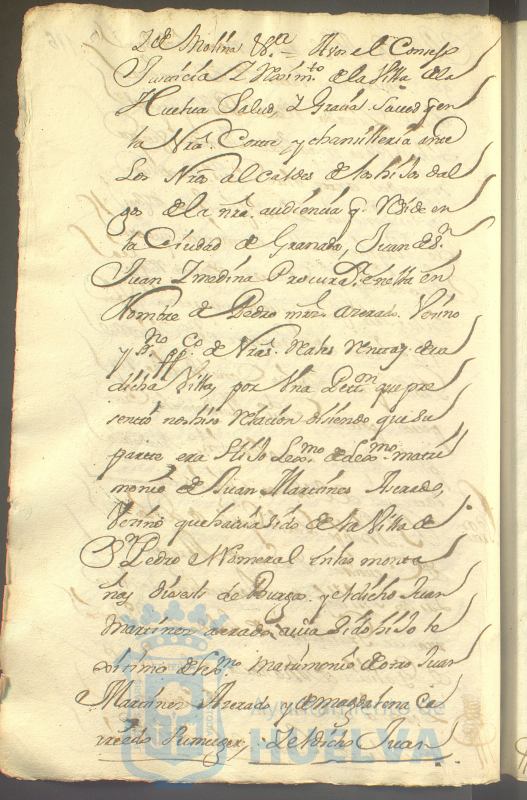 Z de Molina Vª.- A vos el Consejo
Justicia Y Reximto de la Villa de la
Huelva Salud, y Gracia Saved q en
la Nra Corte, y chansilleria ante
Los Nros alcaldes de los hijos dal
gos de la nra audiencia q Reside en
la Ciudad de Granada, Juan de Sn
Juan Y medina Procurador en ella en
Nombre de Pedro mrz. azerado Vezino
y de Nras Reales Rentas de
dicha Villa, por Una Pettn que pre
sentó nos hiso Relacion disiendo que su
parte era Hijo Lexmo de Lexmo matri
monio de Juan Martines Azerado,
Vezino que havia sido de la Villa de
Sn Pedro Romeral en las monta
ñas de Burgos y el dicho Juan
Martines azerado avia sido hijo le
xitimo de lexmo matrimonio de otro Juan
Martines Azerado y de magdalena Ca
rredo su muger, y el dicho Juan
Ayuntamiento de
HUELVA